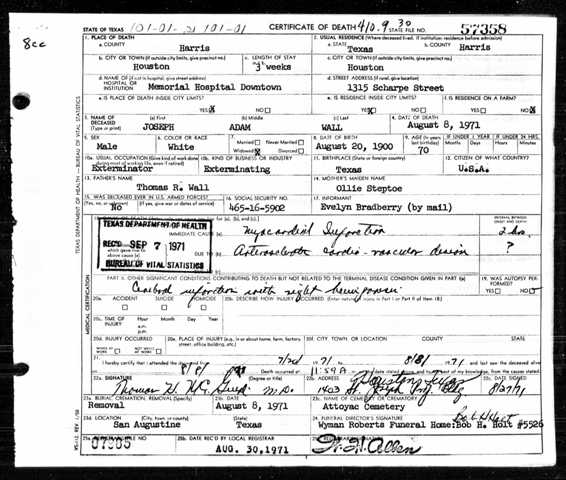 STATE OF TEXAS 101-01- 101-01 CERTIFICATE OF DEATH 410.9 30 STATE FILE NO. 57358
8cc
1. PLACE OF DEATH 2. USUAL RESIDENCE (Where deceased lived. If institution: residence before admission)
a. COUNTY Harris a. STATE Texas b. COUNTY Harris
b. CITY OR TOWN (If outside city limits, give precinct no.) c. LENGTH OF STAY c. CITY OR TOWN (If outside city limits, give precinct no.)
Houston 3 weeks Houston
d. NAME OF (If not in hospital, give street address) HOSPITAL OR INSTITUTION Memorial Hospital Downtown d. STREET ADDRESS (If rural, give location) 1315 Scharpe Street
e. IS PLACE OF DEATH INSIDE CITY LIMITS? YES X NO e. IS RESIDENCE INSIDE CITY LIMITS? YES X NO f. IS RESIDENCE ON A FARM? YES NO X
3. NAME OF DECEASED (Type or print) (a) First JOSEPH (b) Middle ADAM (c) Last WALL 4. DATE OF DEATH August 8, 1971
5. SEX Male 6. COLOR OR RACE White 7. Married Never Married Widowed X Divorced 8. DATE OF BIRTH August 20, 1900 9. AGE (In years last birthday) 70 IF UNDER 1 YEAR IF UNDER 24 HRS.
10a. USUAL OCCUPATION (Give kind of work done during most of working life, even if retired) Exterminator 10b. KIND OF BUSINESS OR INDUSTRY Exterminating 11. BIRTHPLACE (State or foreign country) Texas 12. CITIZEN OF WHAT COUNTRY? U.S.A.
13. FATHER'S NAME Thomas R. Wall 14. MOTHER'S MAIDEN NAME Ollie Steptoe
15. WAS DECEASED EVER IN U.S. ARMED FORCES? No 16. SOCIAL SECURITY NO. 465-16-5902 17. INFORMANT Evelyn Bradberry (by mail)
TEXAS DEPARTMENT OF HEALTH
REC'D SEP 7 1971
BUREAU OF VITAL STATISTICS
IMMEDIATE CAUSE (a) Myocardial Infarction 2 hrs.
DUE TO (b) ?
DUE TO (c)
PART II. OTHER SIGNIFICANT CONDITIONS CONTRIBUTING TO DEATH BUT NOT RELATED TO THE TERMINAL DISEASE CONDITION GIVEN IN PART I(a) 19. WAS AUTOPSY PERFORMED?
Cerebral infarction with right hemiparesis YES NO
20a. ACCIDENT SUICIDE HOMICIDE 20b. DESCRIBE HOW INJURY OCCURRED.
20c. TIME OF INJURY
20d. INJURY OCCURRED 20e. PLACE OF INJURY (e.g., in or about home, farm, factory, street, office building, etc.) 20f. CITY, TOWN, OR LOCATION COUNTY STATE
21. I hereby certify that I attended the deceased from 71 to 8/8/ 71 and last saw the deceased alive
on 8/8/ Death occurred at 11:59 A. m. on the date stated above, and to the best of my knowledge, from the causes stated.
22a. SIGNATURE (Degree or title) M.D. 22b. ADDRESS Houston 22c. DATE SIGNED 8/27/71
23a. BURIAL, CREMATION, REMOVAL (Specify) Removal 23b. DATE August 8, 1971 23c. NAME OF CEMETERY OR CREMATORY Attoyac Cemetery
23d. LOCATION (City, town, or county) (State) San Augustine Texas 24. FUNERAL DIRECTOR'S SIGNATURE Bob H. Holt
Wyman Roberts Funeral Home: Bob H. Holt #5526
25a. REGISTRAR'S FILE NO. 07505 25b. DATE REC'D BY LOCAL REGISTRAR AUG. 30, 1971 25c. REGISTRAR'S SIGNATURE
TEXAS DEPARTMENT OF HEALTH — BUREAU OF VITAL STATISTICS
MEDICAL CERTIFICATION